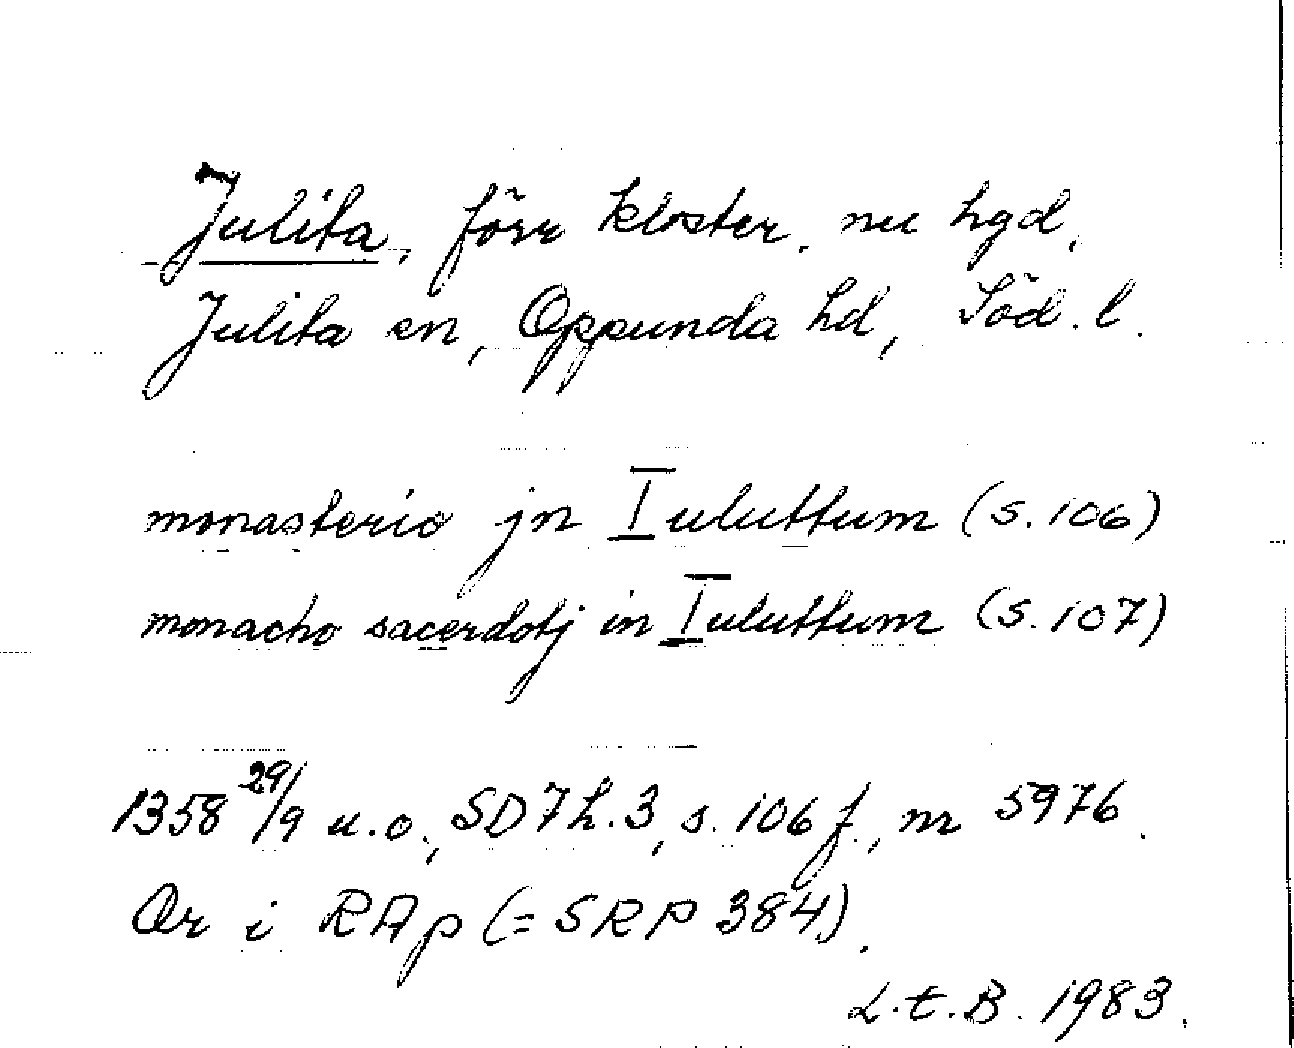 Julita, förr kloster, nu hgd,
Julita sn, Oppunda hd, Söd. l.
monasterio jn Iuluttum (s. 106)
monacho sacerdotj in Iuluttum (s. 107)
1358 29/9 u.o., SD 7 h. 3, s. 106 f., nr 5976.
Or i RAp (= SRP 384).
L.t.B. 1983.